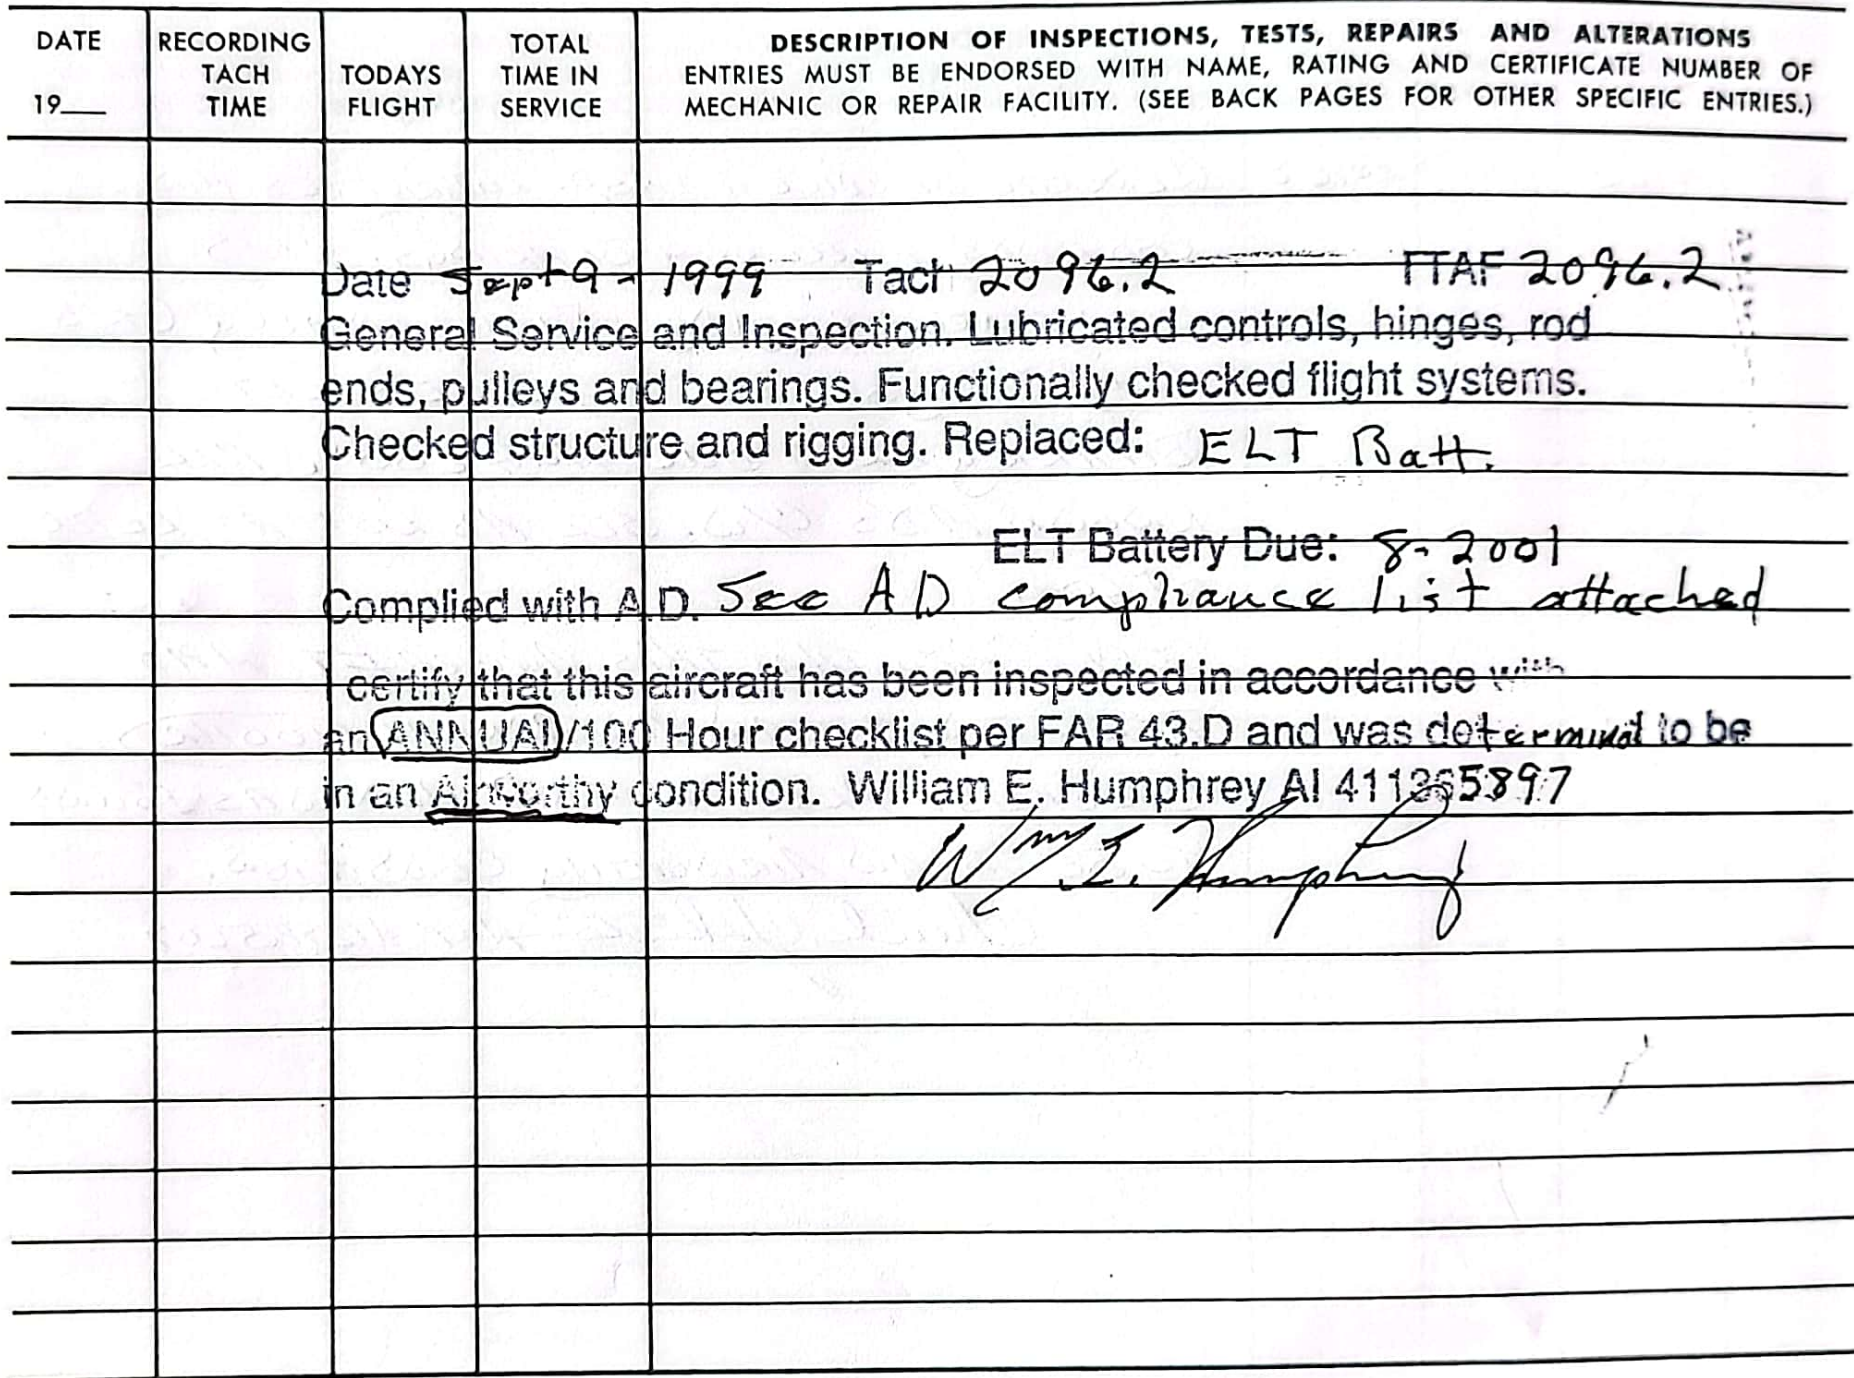 DATE RECORDING TACH TIME TODAYS FLIGHT TOTAL TIME IN SERVICE
19__
DESCRIPTION OF INSPECTIONS, TESTS, REPAIRS AND ALTERATIONS
ENTRIES MUST BE ENDORSED WITH NAME, RATING AND CERTIFICATE NUMBER OF
MECHANIC OR REPAIR FACILITY. (SEE BACK PAGES FOR OTHER SPECIFIC ENTRIES.)
Date Sept 9 - 1999 Tach 2096.2 TTAF 2096.2
General Service and Inspection. Lubricated controls, hinges, rod
ends, pulleys and bearings. Functionally checked flight systems.
Checked structure and rigging. Replaced: ELT Batt.
ELT Battery Due: 8-2001
Complied with A.D. See AD compliance list attached
I certify that this aircraft has been inspected in accordance with
an ANNUAL/100 Hour checklist per FAR 43.D and was determined to be
in an Airworthy condition. William E. Humphrey AI 411365897
Wm E. Humphrey